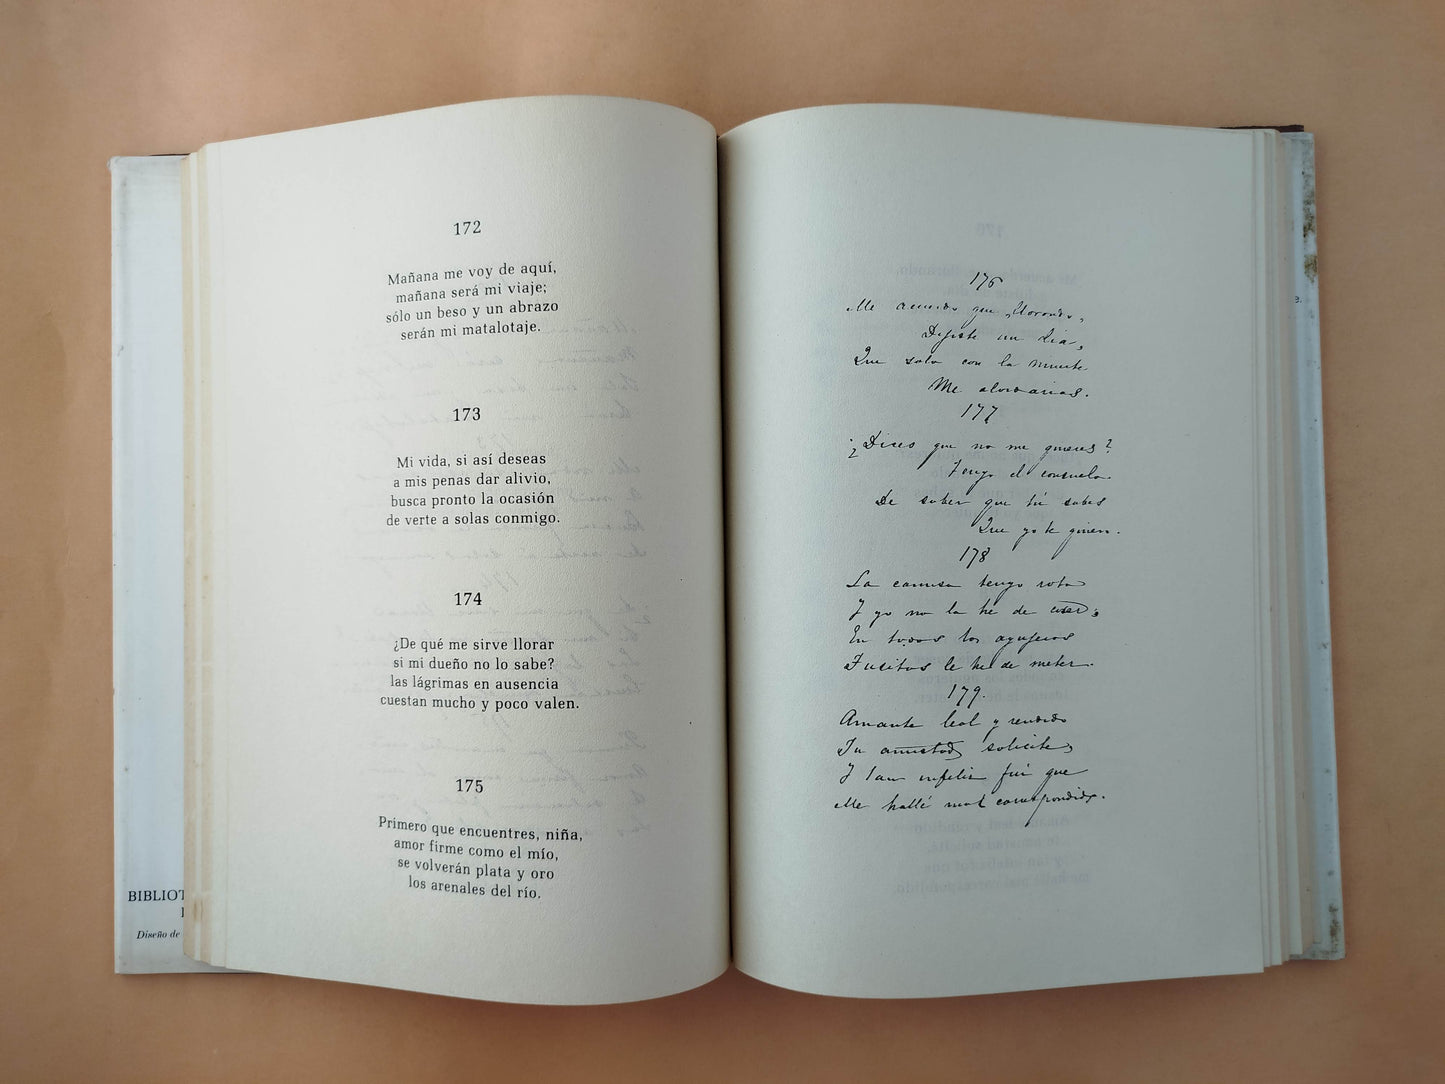 172
Mañana me voy de aquí,
mañana será mi viaje;
sólo un beso y un abrazo
serán mi matalotaje.
173
Mi vida, si así deseas
a mis penas dar alivio,
busca pronto la ocasión
de verte a solas conmigo.
174
¿De qué me sirve llorar
si mi dueño no lo sabe?
las lágrimas en ausencia
cuestan mucho y poco valen.
175
Primero que encuentres, niña,
amor firme como el mío,
se volverán plata y oro
los arenales del río.
BIBLIOT
Diseño de
176
Me acuerdo que llorando,
Dijiste un dia,
Que solo con la muerte
Me olvidarias.
177
¿Dices que no me quieres?
Tengo el consuelo
De saber que tú sabes
Que yo te quiero.
178
La camisa tengo rota
Y yo no la hé de coser;
En todos los agujeros
Tusitos le he de meter.
179.
Amante leal y rendido
Tu amistad solicité,
Y tan infeliz fuí que
Me hallé mal correspondido.